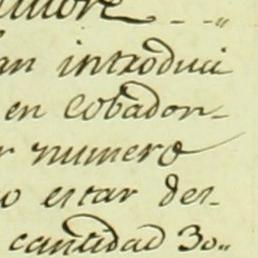 an introduci
en Cobadon-
r numero
o estar des-
cantidad 30..